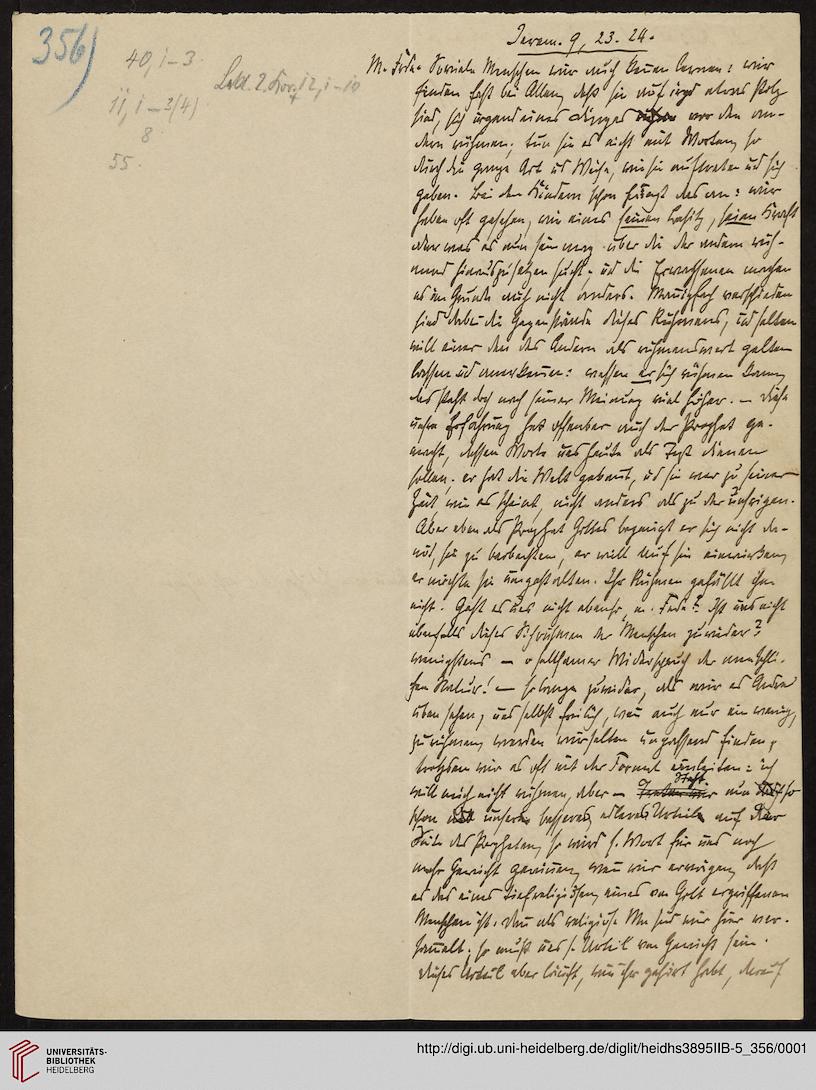 356)
40, 1-3.
Lekt. 2. Kor. 12, 1-10
11, 1-3(4)
8
55.
Jerem. 9, 23. 24.
M. Frde. Soviele Menschen wir auch kennen lernen: wir
finden fast bei Allen, daß sie auf irgd etwas stolz
sind, sich irgend eines Dinges vor den an-
dern rühmen; tun sie es nicht mit Worten, so
durch die ganze Art ud Weise, wie sie auftreten ud sich
geben. Bei den Kindern schon fängt das an: wir
haben oft gesehen, wie eines seinen Besitz, seine Kraft
oder was es nun sein mag über die der andern rüh-
mend hinauszusetzen sucht; ud die Erwachsenen machen
es im Grunde auch nicht anders. Mannigfach verschieden
sind dabei die Gegenstände dieses Rühmens, ud selten
will einer den des Andern als rühmenswert gelten
lassen ud anerkennen: wessen er sich rühmen kann,
das steht doch nach seiner Meinung viel höher. – Diese
unsre Erfahrung hat offenbar auch der Prophet ge-
macht, dessen Worte uns heute als Text dienen
sollen. er hat die Welt gekannt, ud sie war zu seiner
Zeit, wie es scheint, nicht anders als zu der unsrigen.
Aber eben als Prophet Gottes begnügt er sich nicht da-
mit, sie zu beobachten, er will auf sie einwirken,
er möchte sie umgestalten. Ihr Rühmen gefällt ihm
nicht. Geht es uns nicht ebenso, m. Frde? Ist uns nicht
ebenfalls dieses Sichrühmen der Menschen zuwider?
wenigstens – o seltsamer Widerspruch der menschli-
chen Natur! – solange zuwider, als wir es Andre
üben sehen; uns selbst freilich, wenn auch nur ein wenig,
zu rühmen, werden wir selten unpassend finden,
trotzdem wir es oft mit der Formel einleiten: ich
will mich nicht rühmen, aber – Steht nun so
schon unser besseres, edleres Urteil auf der
Seite des Propheten, so wird s. Wort für uns noch
mehr Gewicht gewinnen, wenn wir erwägen, daß
es das eines tiefreligiösen, eines von Gott ergriffenen
Menschen ist. Denn als religiöse Me sind wir hier ver-
sammelt; so muß uns s. Urteil von Gewicht sein.
Dieses Urteil aber läuft, wie ihr gehört habt, darauf
UNIVERSITÄTS-
BIBLIOTHEK
HEIDELBERG
http://digi.ub.uni-heidelberg.de/diglit/heidhs3895IIB-5_356/0001